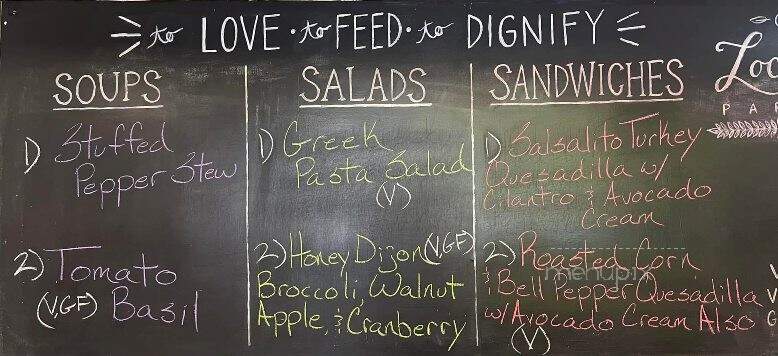 to LOVE · to FEED · to DIGNIFY
SOUPS
1) Stuffed
Pepper Stew
2) Tomato
(V,GF) Basil
SALADS
1) Greek
Pasta Salad
(V)
2) Honey Dijon (V,GF)
Broccoli, Walnut
Apple, & Cranberry
SANDWICHES
1) Salsalito Turkey
Quesadilla w/
Cilantro & Avocado
Cream
2) Roasted Corn
& Bell Pepper Quesadilla
w/ Avocado Cream Also
(V)
menupix
Loc
PA
V
V
G